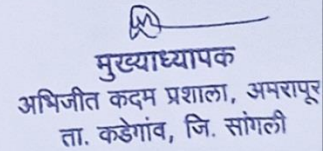 मुख्याध्यापक
अभिजीत कदम प्रशाला, अमरापूर
ता. कडेगांव, जि. सांगली